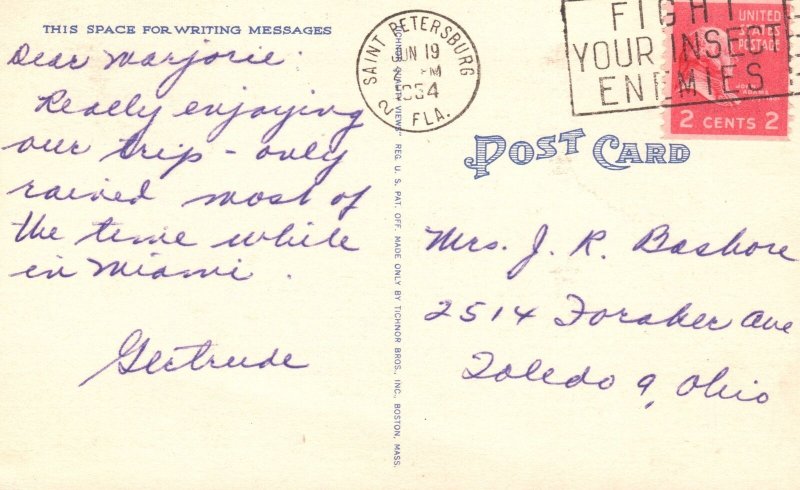 THIS SPACE FOR WRITING MESSAGES
Dear Marjorie:
Really enjoying
our trip - only
rained most of
the time while
in Miami.
Gertrude
"TICHNOR QUALITY VIEWS" REG. U. S. PAT. OFF. MADE ONLY BY TICHNOR BROS., INC., BOSTON, MASS.
SAINT PETERSBURG
JUN 19
M
1954
2 FLA.
FIGHT
YOUR INSECT
ENEMIES
UNITED
STATES
POSTAGE
JOHN
ADAMS
2 CENTS 2
POST CARD
Mrs. J. R. Bashore
2514 Foraker Ave
Toledo 9, Ohio